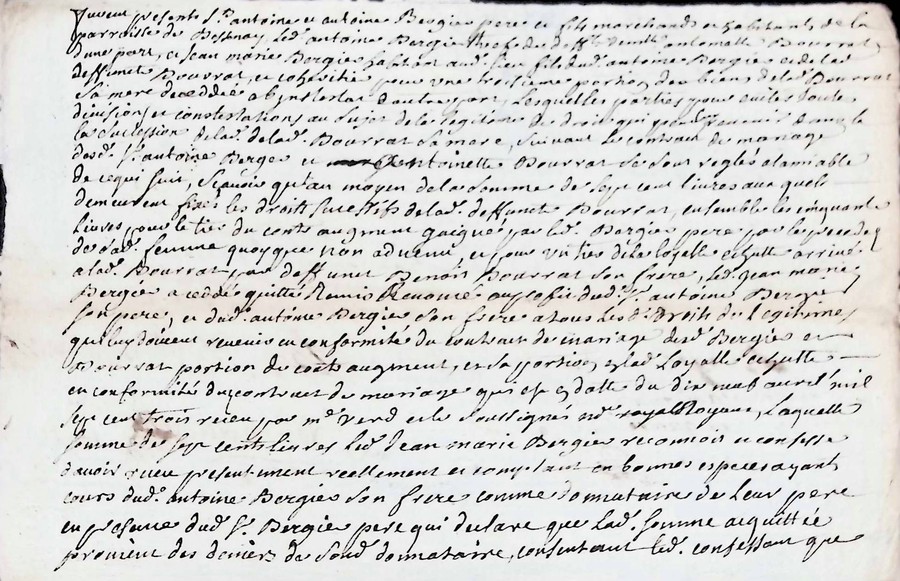 Furent presents Sr. antoine et antoine Bergier pere et fils marchands et habitants de la
parroisse de led. antoine Bergier de deffte. demlle antoinette Bourrat
d'une part, et Jean marie Bergier aud. lieu fils dud. antoine Bergier et de lad.
deffunte Bourrat, et cohéritié pour une troisieme portion des biens de lad. Bourrat
Sa mere decedée ab intestat d'autre part, Lesquelles parties pour eviter toute
division et contestations au Sujet de la legitime de droit qui peut revenir dans
la Succession de lad. Bourrat Sa mere, Suivant le contrat de mariage
desd. Sr. antoine Bergier et antoinette Bourrat se sont reglés a lamiable
de ce qui suit, Scavoir qu'au moyen de la Somme de Sept cent livres aux quels
demeurent fixés les droits Successifs de lad. deffunte Bourrat, ensemble les cinquante
livres pour le tiers du cont. augment gaigné par led. Bergier pere par le predeces
de sad. femme quoyque non advenu, et pour un tiers de la loyalle echutte arrivé
a lad. Bourrat par deffunt Benoit Bourrat Son frere, led. Jean marie
Bergier a ceddé quitté Remis Renoncé au profit dud. Sr. antoine Bergier
Son pere, et dud. antoine Bergier Son frere a tous les d. Droits de legitime
qui luy doivent revenir en conformité du contrat de mariage desd. Bergier et
Bourrat portion de cont. augment, et sa portion lad. Loyalle echutte
en conformité du contrat de mariage qui est datte du dix neuf avril mil
Sept cent trois receu par me. Verd et le Soussigné no. royal Royaume, Laquelle
Somme de Sept cents livres led. Jean marie Bergier reconnois et confesse
davoir receu presentement reellement et comptant en bonnes especes ayant
cours dud. antoine Bergier Son frere comme donnataire de leur pere
en presence dud. Sr. Bergier pere qui declare que lad. Somme acquittée
provient des deniers de Sond. donnataire, consentant led. confessant que